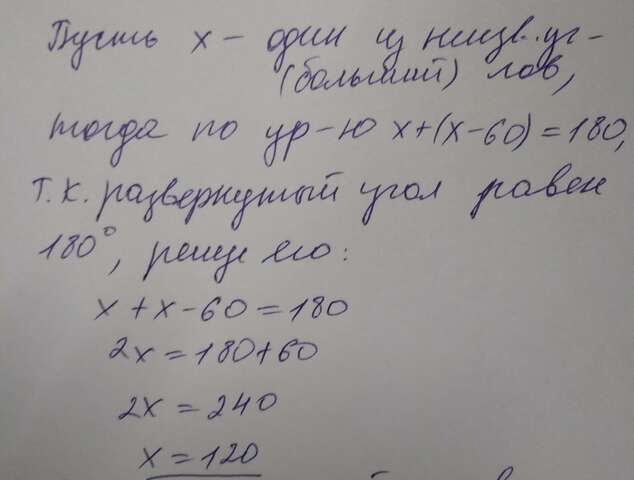 Пусть x – один из неизв. уг-
(больший) лов,
тогда по ур-ю x+(x-60)=180,
т.к. развернутый угол равен
180°, реше его:
x+x-60=180
2x=180+60
2x=240
x=120